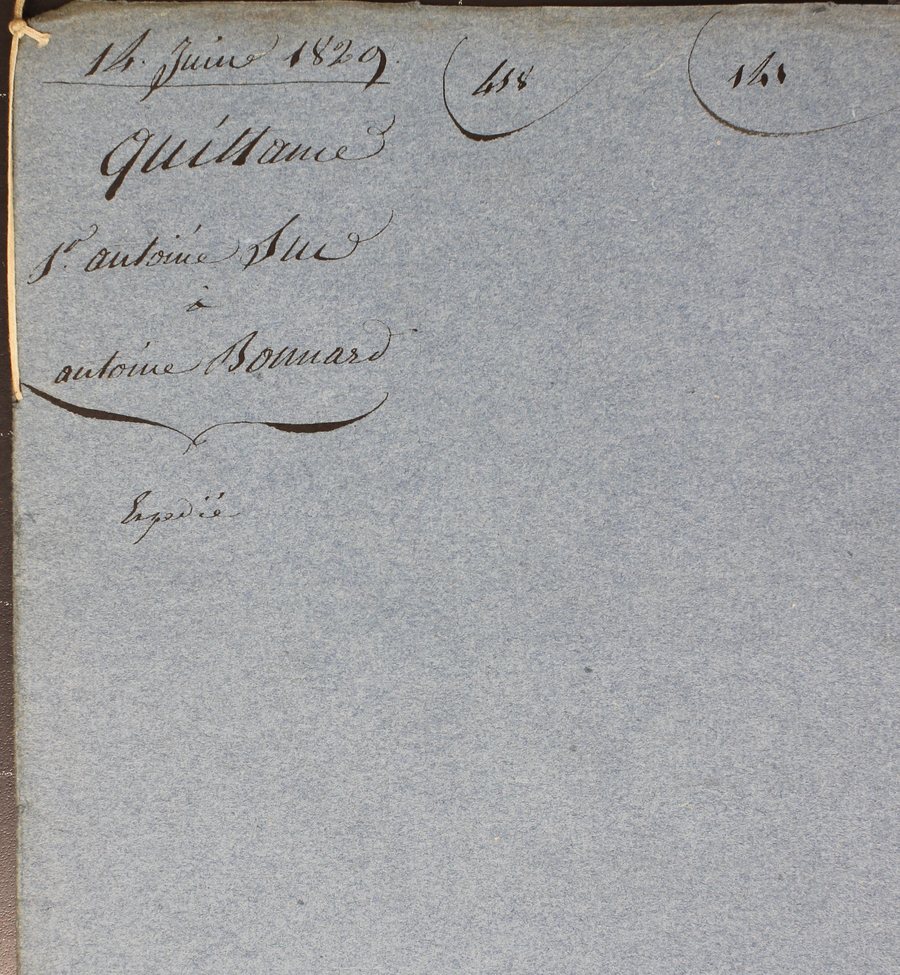 14. Juin 1829.
418
141
Quittance
Sr. antoine Luc
à
antoine Bonnard
Expedié